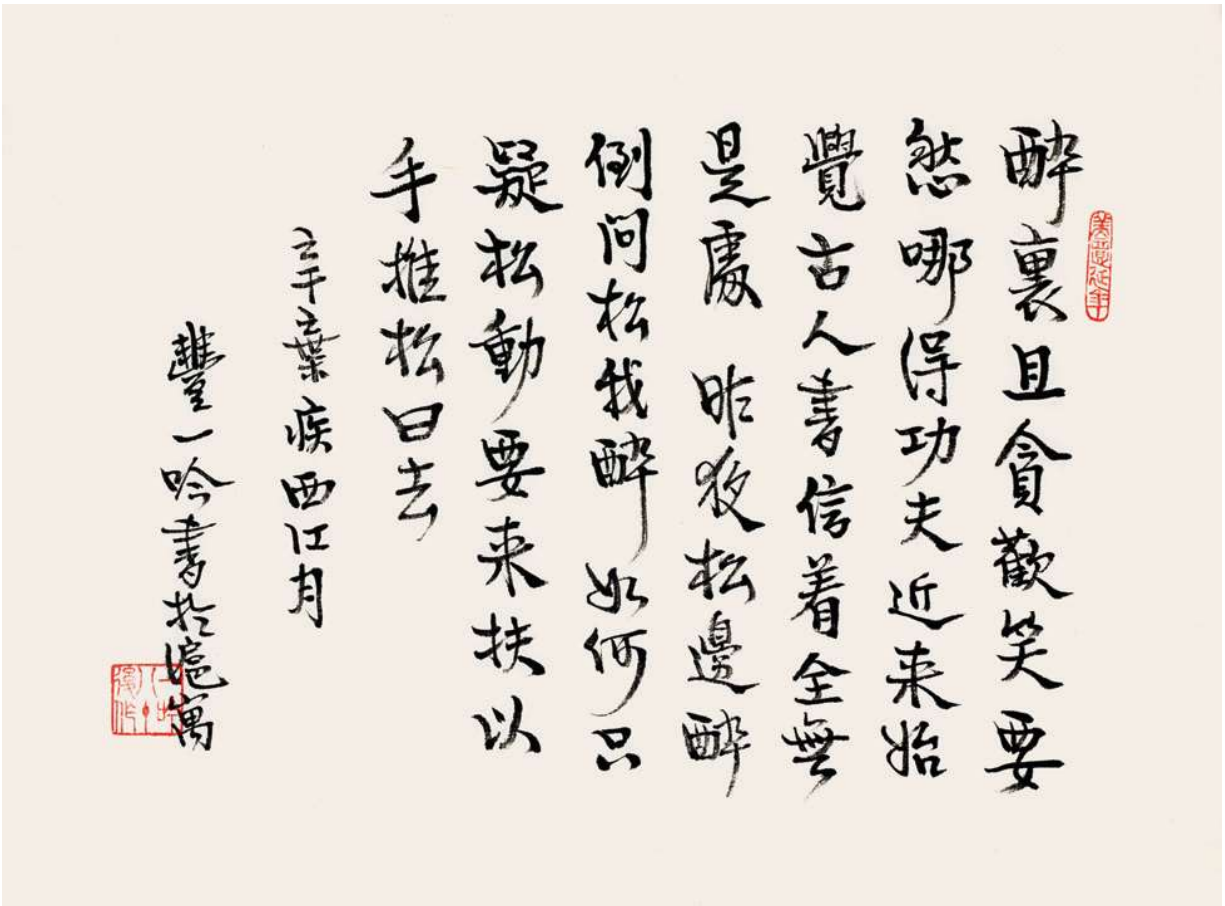 美意延年
醉裏且貪歡笑要
愁哪得功夫近来始
覺古人書信着全無
是處 昨夜松邊醉
倒问松我醉如何只
疑松動要来扶以
手推松曰去
辛棄疾西江月
豐一吟書於滬寓